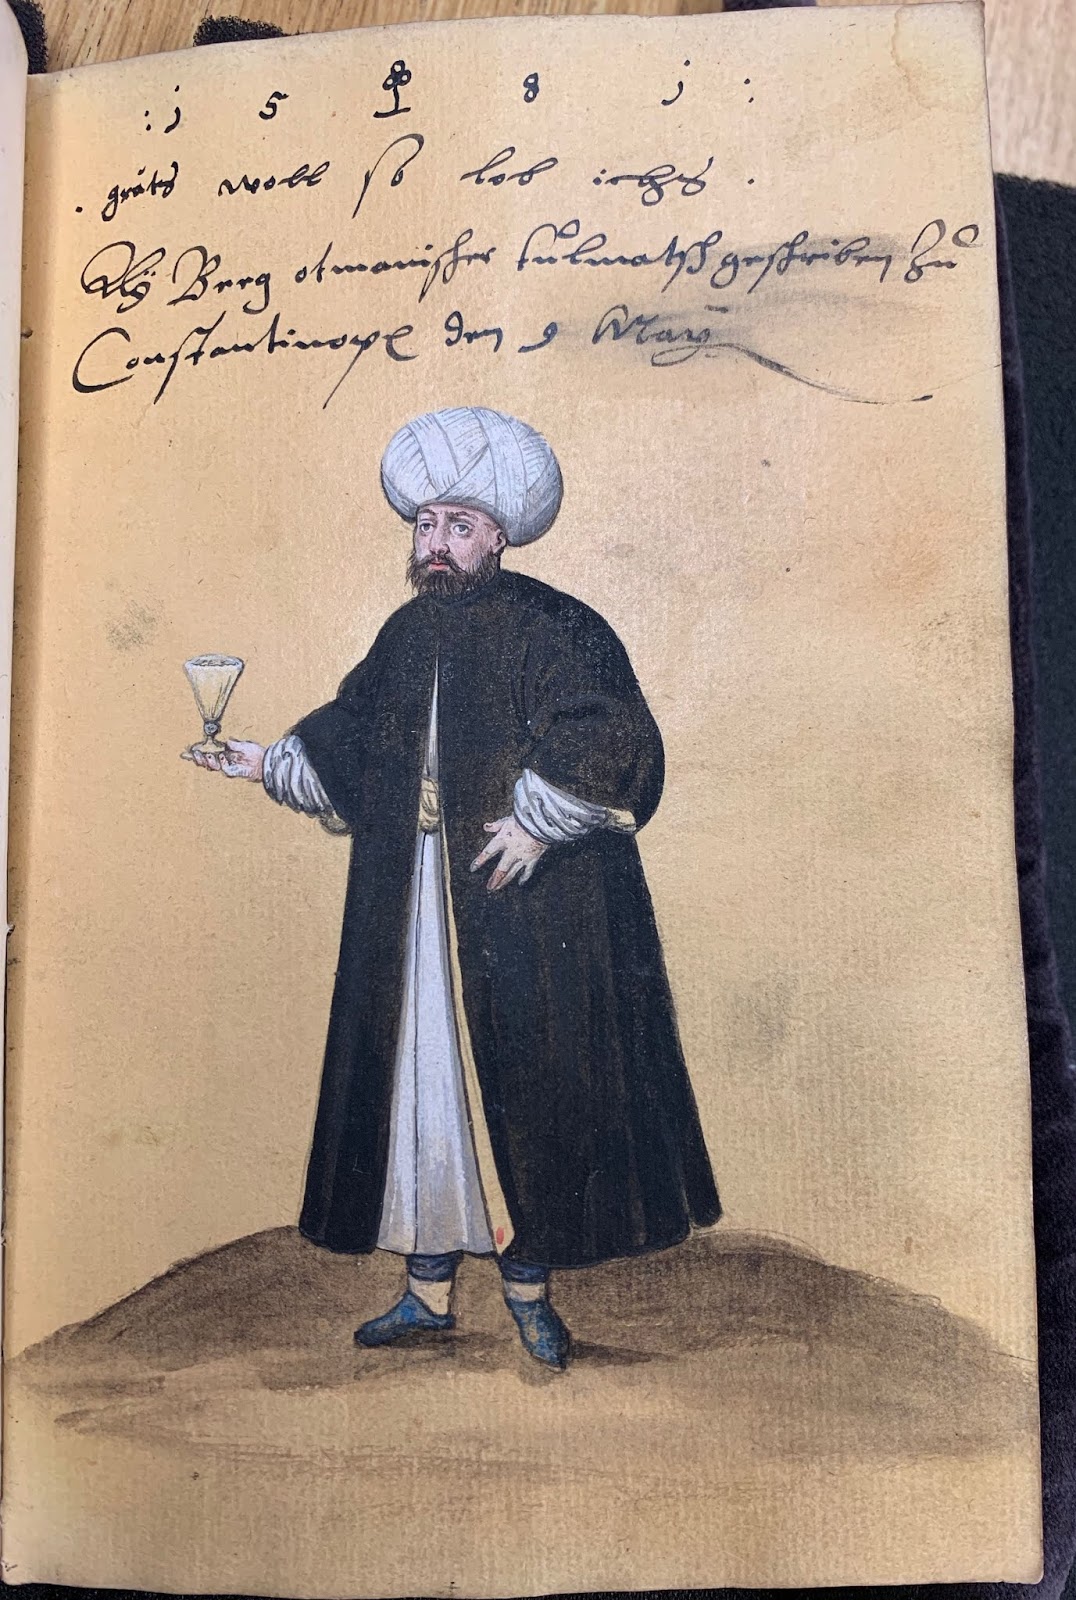 : 1 5 8 1 :
. gräts woll so lob ichs .
Aly Beeg otmanischer tulmatsch geschriben zů
Constantinopl den 9 May